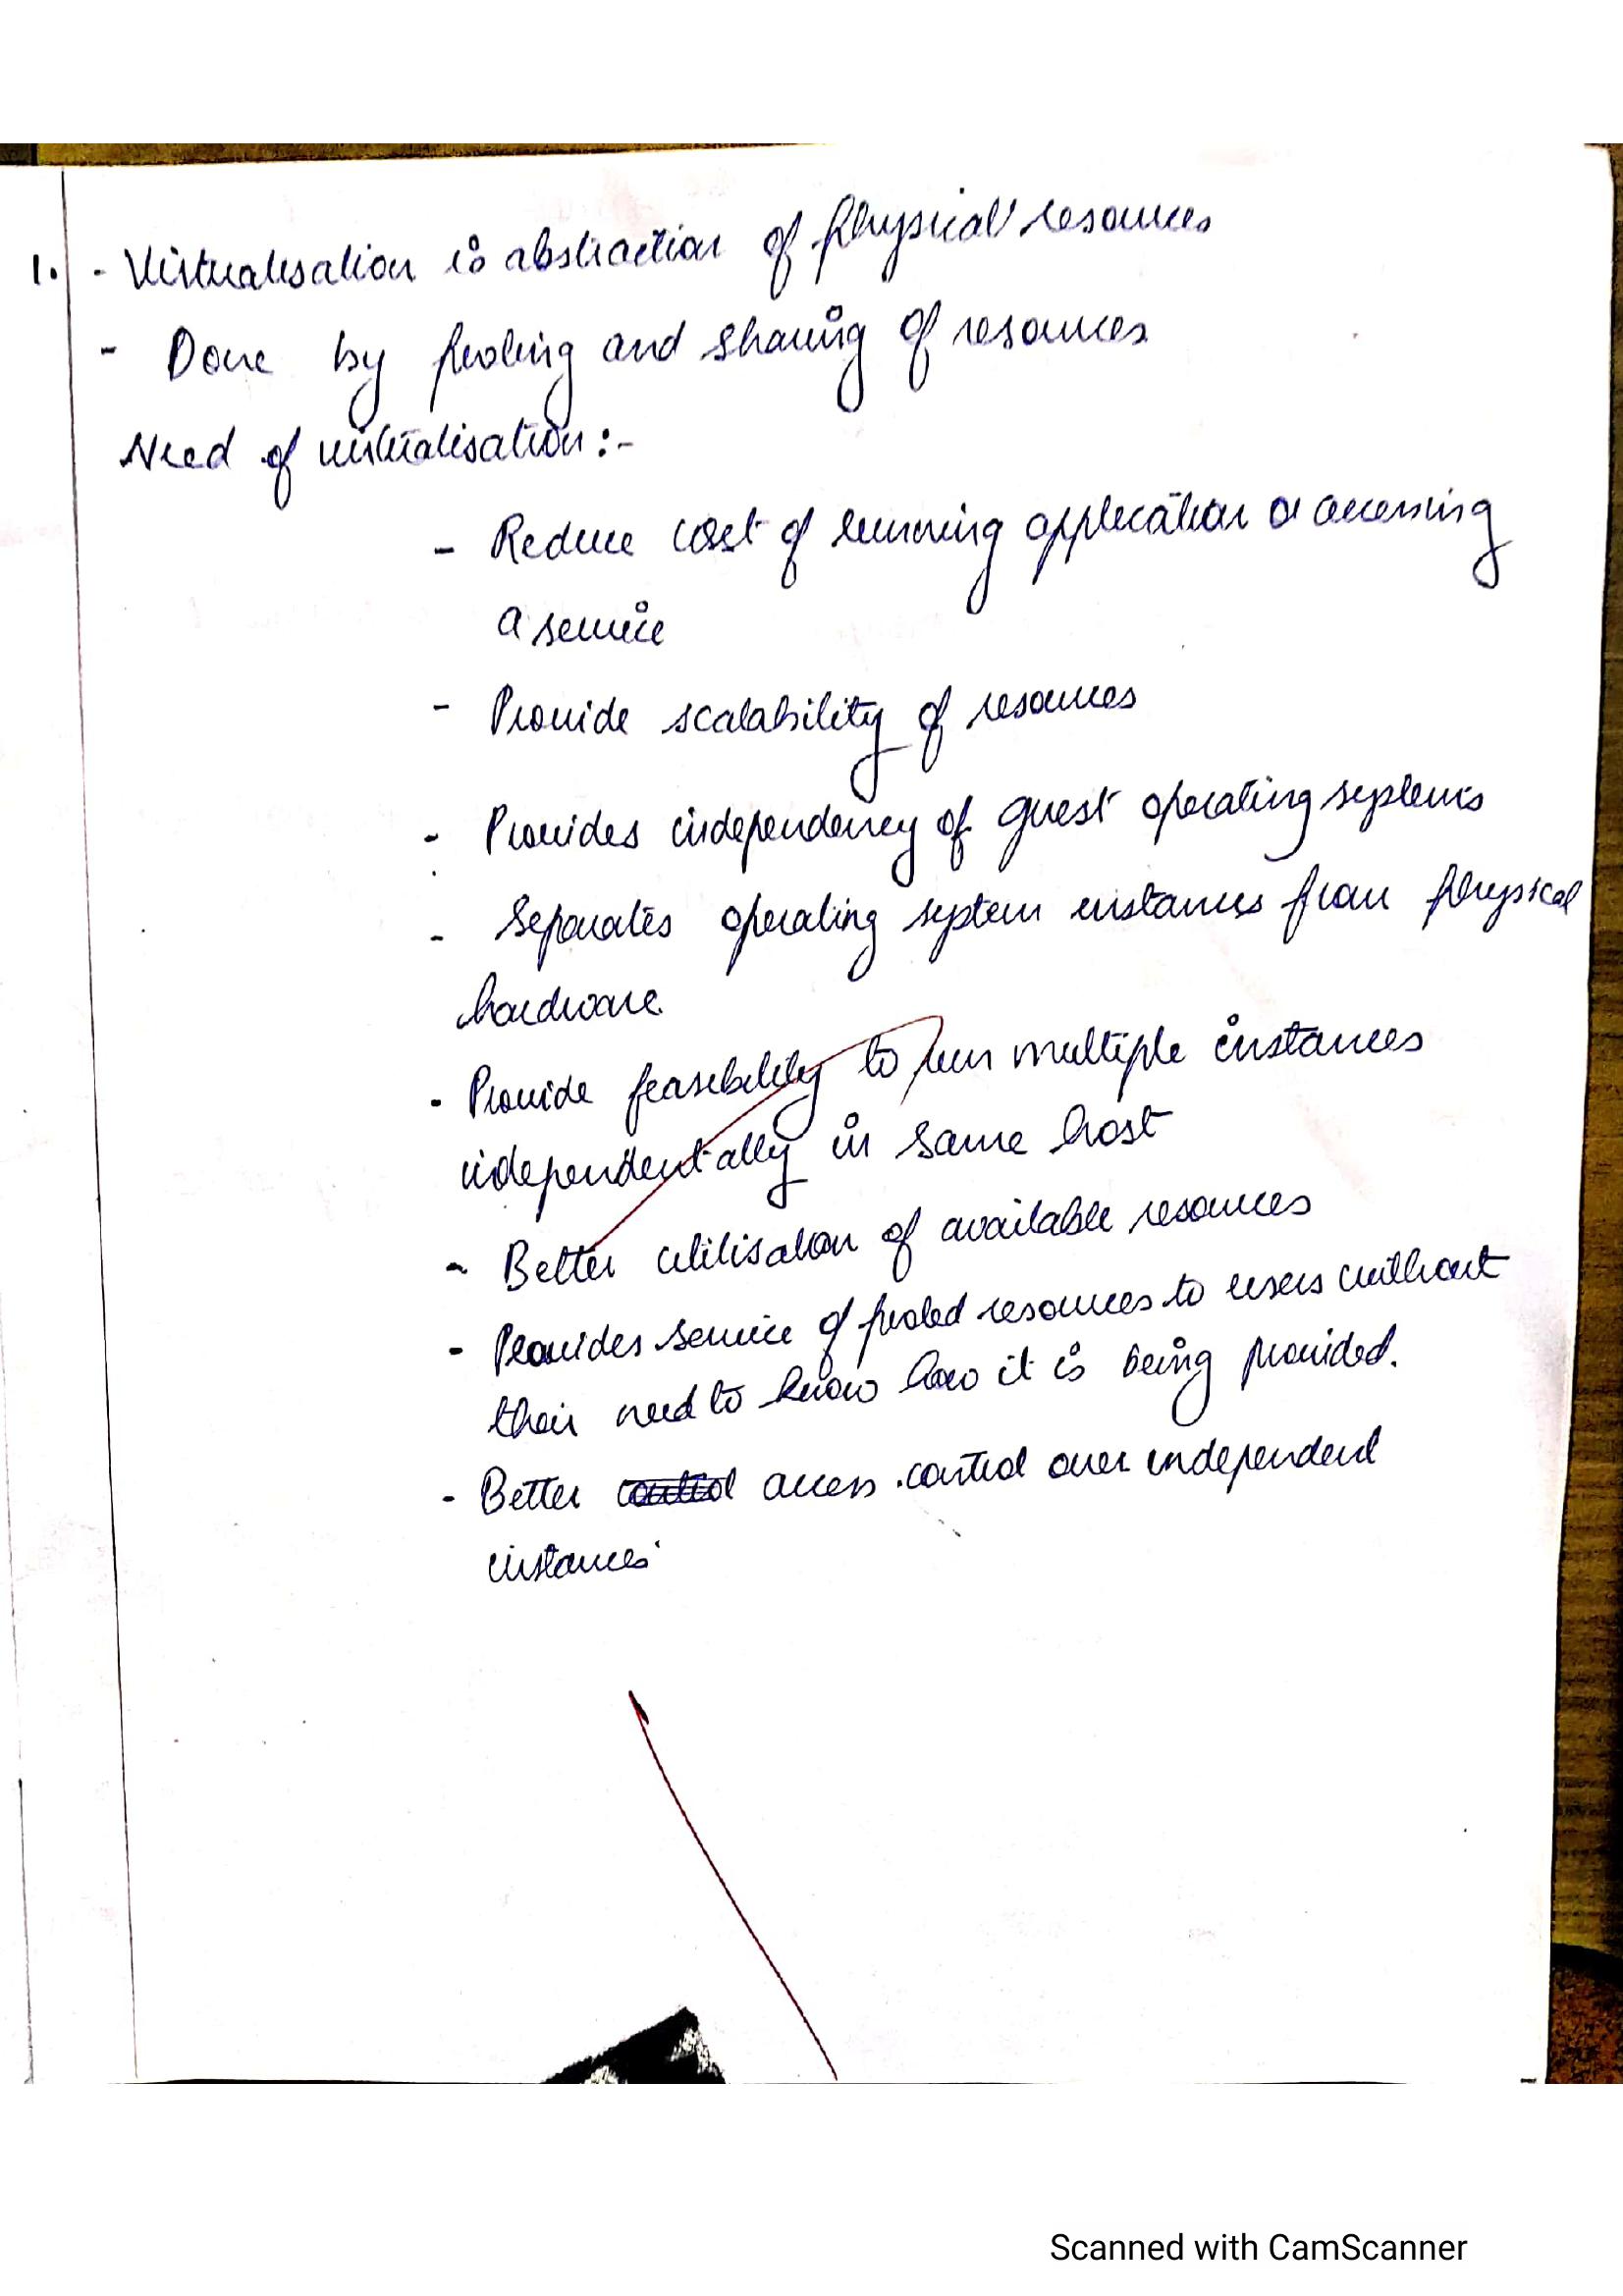 1. - Virtualisation is abstraction of physical resources
- Done by pooling and sharing of resources
Need of virtualisation :-
- Reduce cost of running application or accessing
a service
- Provide scalability of resources
- Provides independency of guest operating systems
- Separates operating system instances from physical
hardware
- Provide feasibility to run multiple instances
independentally in same host
- Better utilisation of available resources
- Provides service of pooled resources to users without
their need to know how it is being provided.
- Better control access control over independent
instances
Scanned with CamScanner